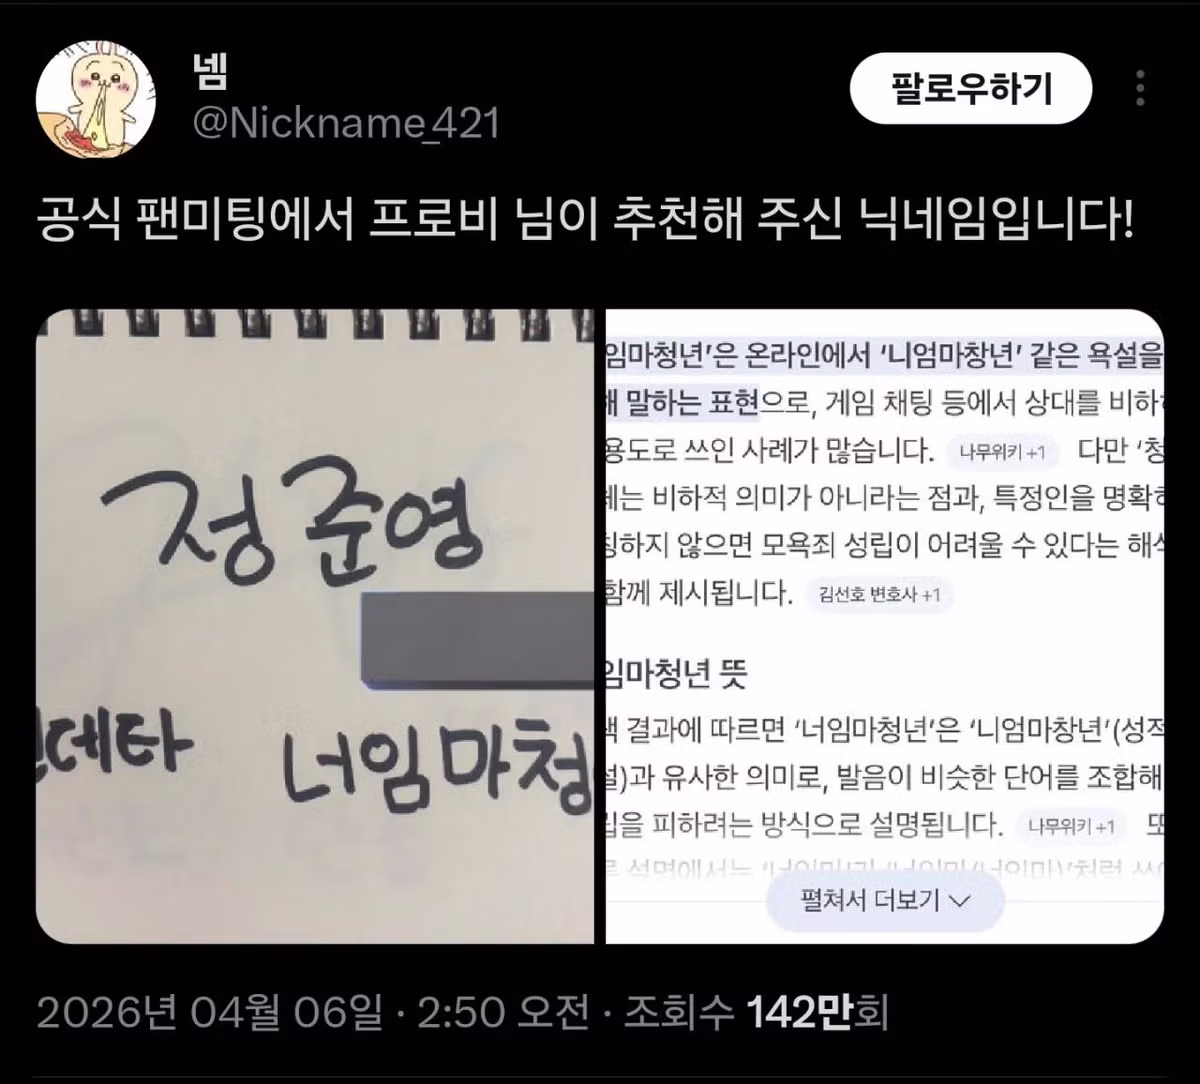 넴
@Nickname_421
팔로우하기
공식 팬미팅에서 프로비 님이 추천해 주신 닉네임입니다!
정준영
데타
너임마청
임마청년’은 온라인에서 ‘니엄마창년’ 같은 욕설을
해 말하는 표현으로, 게임 채팅 등에서 상대를 비하
용도로 쓰인 사례가 많습니다. 나무위키 +1 다만 ‘청
체는 비하적 의미가 아니라는 점과, 특정인을 명확
칭하지 않으면 모욕죄 성립이 어려울 수 있다는 해석
함께 제시됩니다. 김선호 변호사 +1
임마청년 뜻
색 결과에 따르면 ‘너임마청년’은 ‘니엄마창년’(성적
설)과 유사한 의미로, 발음이 비슷한 단어를 조합해
립을 피하려는 방식으로 설명됩니다. 나무위키 +1 또
펼쳐서 더보기
2026년 04월 06일 · 2:50 오전 · 조회수 142만회